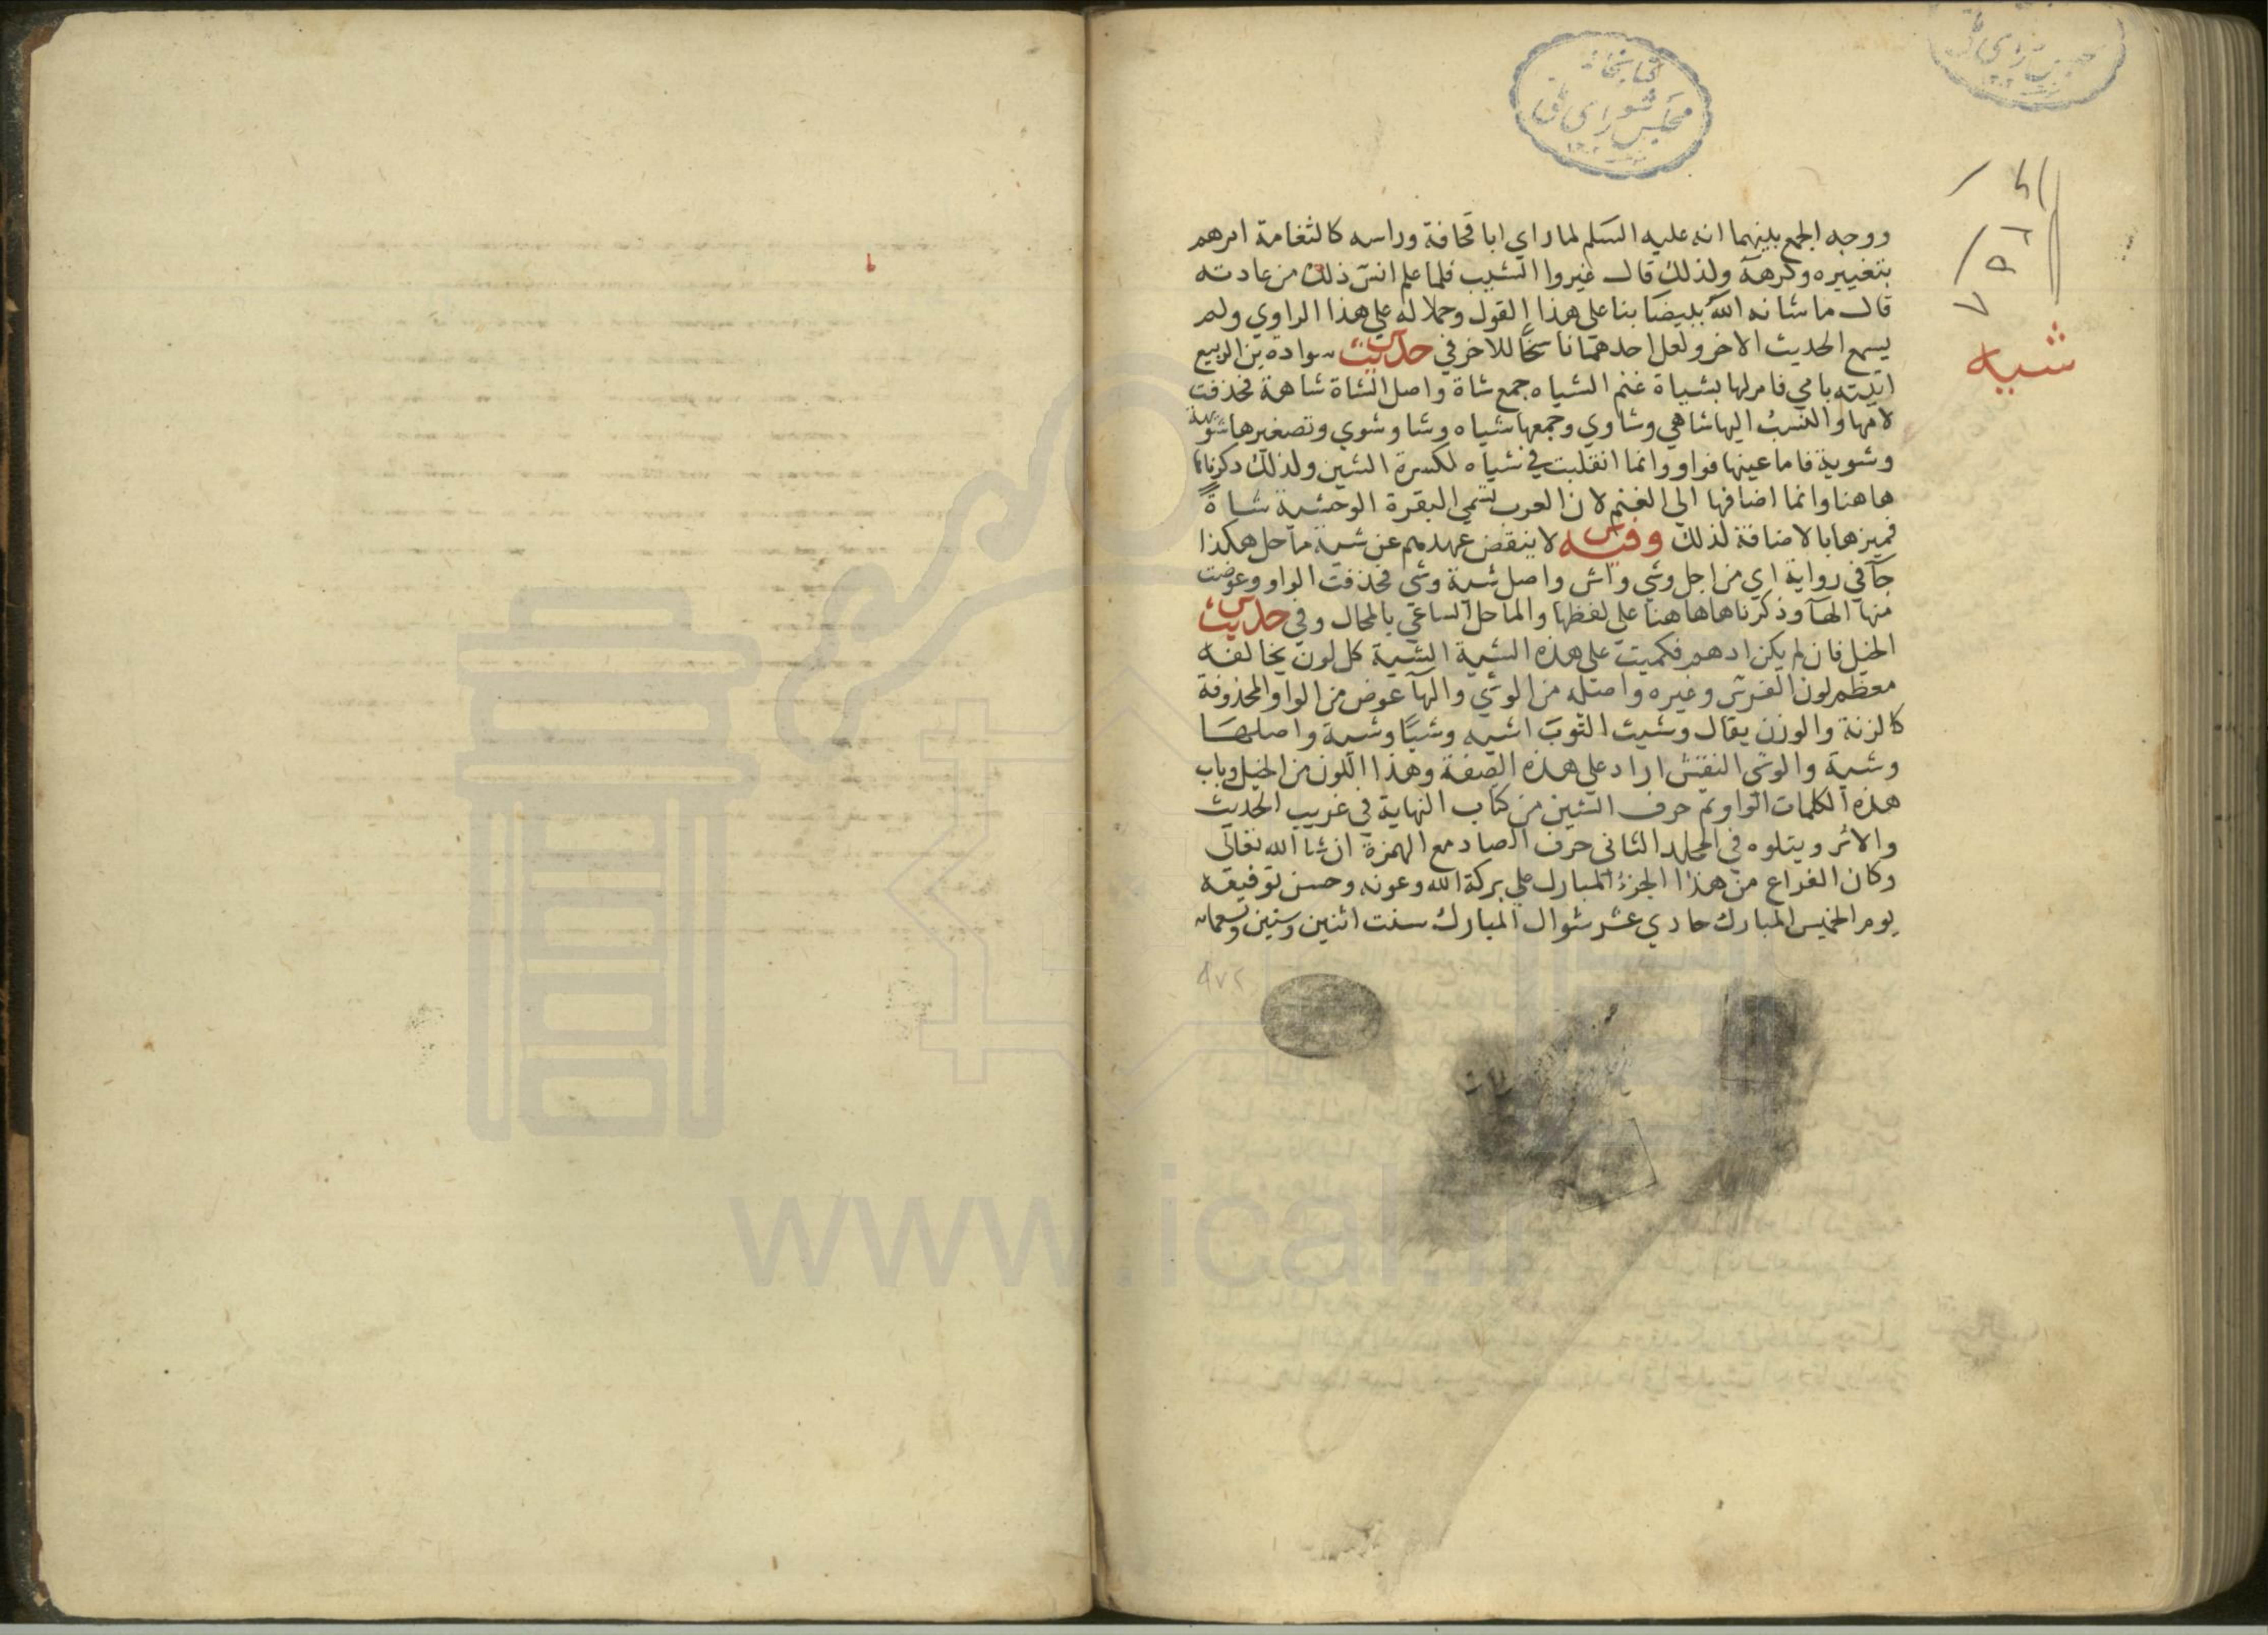 كتابخانه
مجلس شورای ملی
شيه
ووجه الجمع بينهما انه عليه السلم لما راي ابا قحافة وراسه كالثغامة امرهم
بتغييره وكرهه ولذلك قال غيروا الشيب فلما علم انس ذلك من عادته
قال ما شانه الله ببيضا بنا على هذا القول وحملا له علي هذا الراوي ولم
يسمع الحديث الاخر ولعل احدهما ناسخا للاخر في حديث سوادة بن الربيع
اتيته بامي فامر لها بشياة غنم الشياه جمع شاة واصل الشاة شاهة فحذفت
لامها والنسب اليها شاهي وشاوي وجمعها شياه وشا وشوي وتصغيرها شويهة
وشوية فاما عينها فواو وانما انقلبت في شياه لكسرة الشين ولذلك ذكرناها
هاهنا وانما اضافها الي الغنم لان العرب تسمي البقرة الوحشية شاة
فميزها بالاضافة لذلك وفيه لا ينقض عهدهم عن شية ماحل هكذا
جآ في رواية اي من اجل وشي واش واصل شية وشي فحذفت الواو وعوضت
منها الهآ وذكرناها هاهنا على لفظها والماحل الساعي بالمحال وفي حديث
الخيل فان لم يكن ادهم فكميت علي هذه الشية الشية كل لون يخالف
معظم لون الفرس وغيره واصله من الوشي والهآ عوض من الواو المحذوفة
كالزنة والوزن يقال وشيت الثوب اشيه وشيا وشية واصلها
وشية والوشي النقش اراد علي هذه الصفة وهذا اللون من الخيل وباب
هذه الكلمات الواو تم حرف الشين من كتاب النهاية في غريب الحديث
والاثر ويتلوه في المجلد الثاني حرف الصاد مع الهمزة ان شا الله تعالى
وكان الفراغ من هذا الجزؤ المبارك علي بركة الله وعونه وحسن توفيقه
يوم الخميس المبارك حادي عشر شوال المبارك سنت اثنين وستين وتسعمايه
www.ical.ir